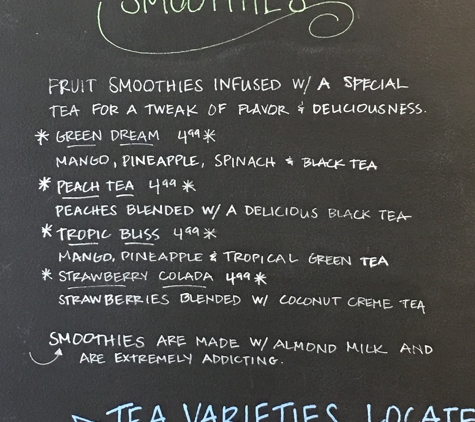 SMOOTHIES
FRUIT SMOOTHIES INFUSED W/ A SPECIAL
TEA FOR A TWEAK OF FLAVOR & DELICIOUSNESS.
* GREEN DREAM 4⁹⁹ *
MANGO, PINEAPPLE, SPINACH & BLACK TEA
* PEACH TEA 4⁹⁹ *
PEACHES BLENDED W/ A DELICIOUS BLACK TEA
* TROPIC BLISS 4⁹⁹ *
MANGO, PINEAPPLE & TROPICAL GREEN TEA
* STRAWBERRY COLADA 4⁹⁹ *
STRAWBERRIES BLENDED W/ COCONUT CREME TEA
SMOOTHIES ARE MADE W/ ALMOND MILK AND
ARE EXTREMELY ADDICTING.
TEA VARIETIES LOCATE